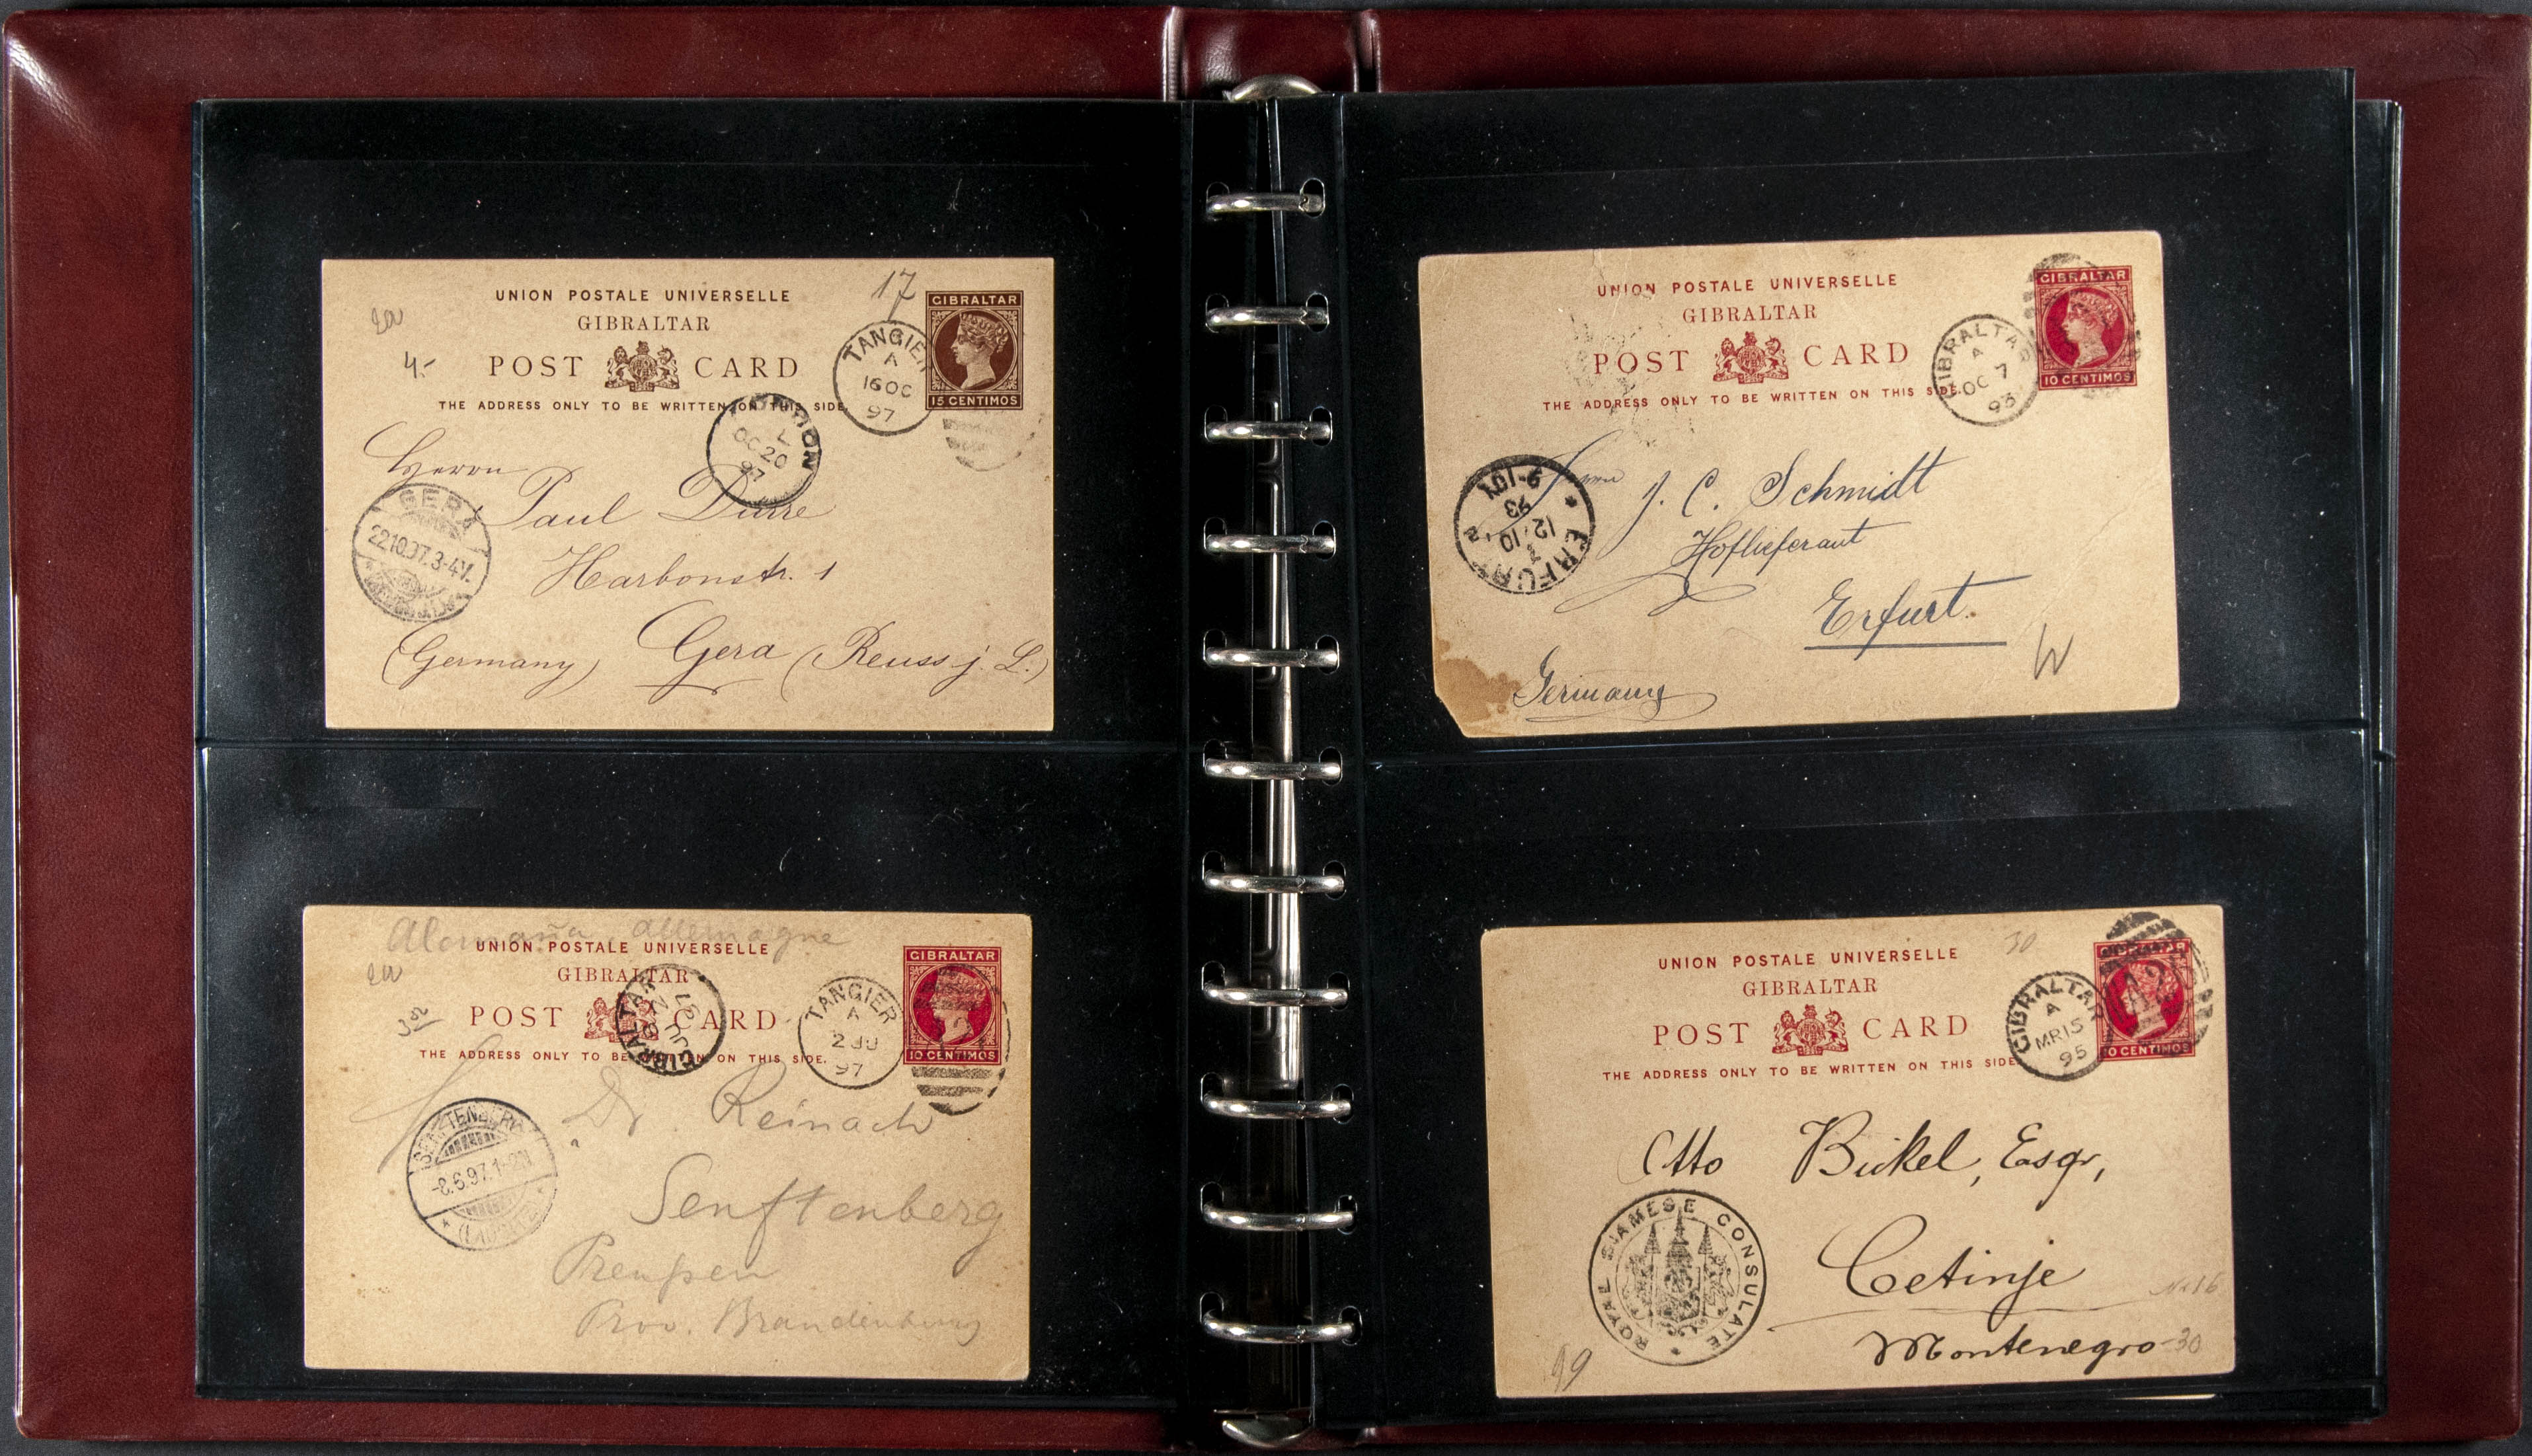 17
UNION POSTALE UNIVERSELLE
GIBRALTAR
POST CARD
THE ADDRESS ONLY TO BE WRITTEN ON THIS SIDE.
GIBRALTAR
15 CENTIMOS
TANGIER
A
16 OC
97
4.-
LONDON
L
OC 20
97
Herrn
Paul Dürre
GERA
22.10.97.3-4N.
Harbonstr. 1
(Germany) Gera (Reuss j. L.)
UNION POSTALE UNIVERSELLE
GIBRALTAR
POST CARD
THE ADDRESS ONLY TO BE WRITTEN ON THIS SIDE.
GIBRALTAR
10 CENTIMOS
GIBRALTAR
A
OC 7
93
J. C. Schmidt
Hoflieferant
Erfurt
Germany
ERFURT
12/10
93
9-10V
Alemaña Allemagne
UNION POSTALE UNIVERSELLE
GIBRALTAR
POST CARD
THE ADDRESS ONLY TO BE WRITTEN ON THIS SIDE.
GIBRALTAR
10 CENTIMOS
GIBRALTAR
TANGIER
A
2 JU
97
Dr. Reinach
SENFTENBERG
-8.6.97.1-2N
Senftenberg
Preußen
Prov. Brandenburg
30
UNION POSTALE UNIVERSELLE
GIBRALTAR
POST CARD
THE ADDRESS ONLY TO BE WRITTEN ON THIS SIDE.
10 CENTIMOS
GIBRALTAR
A
MR 15
95
Otto Bickel, Esqr,
Cetinje
Montenegro
-30
ROYAL SIAMESE CONSULATE
99